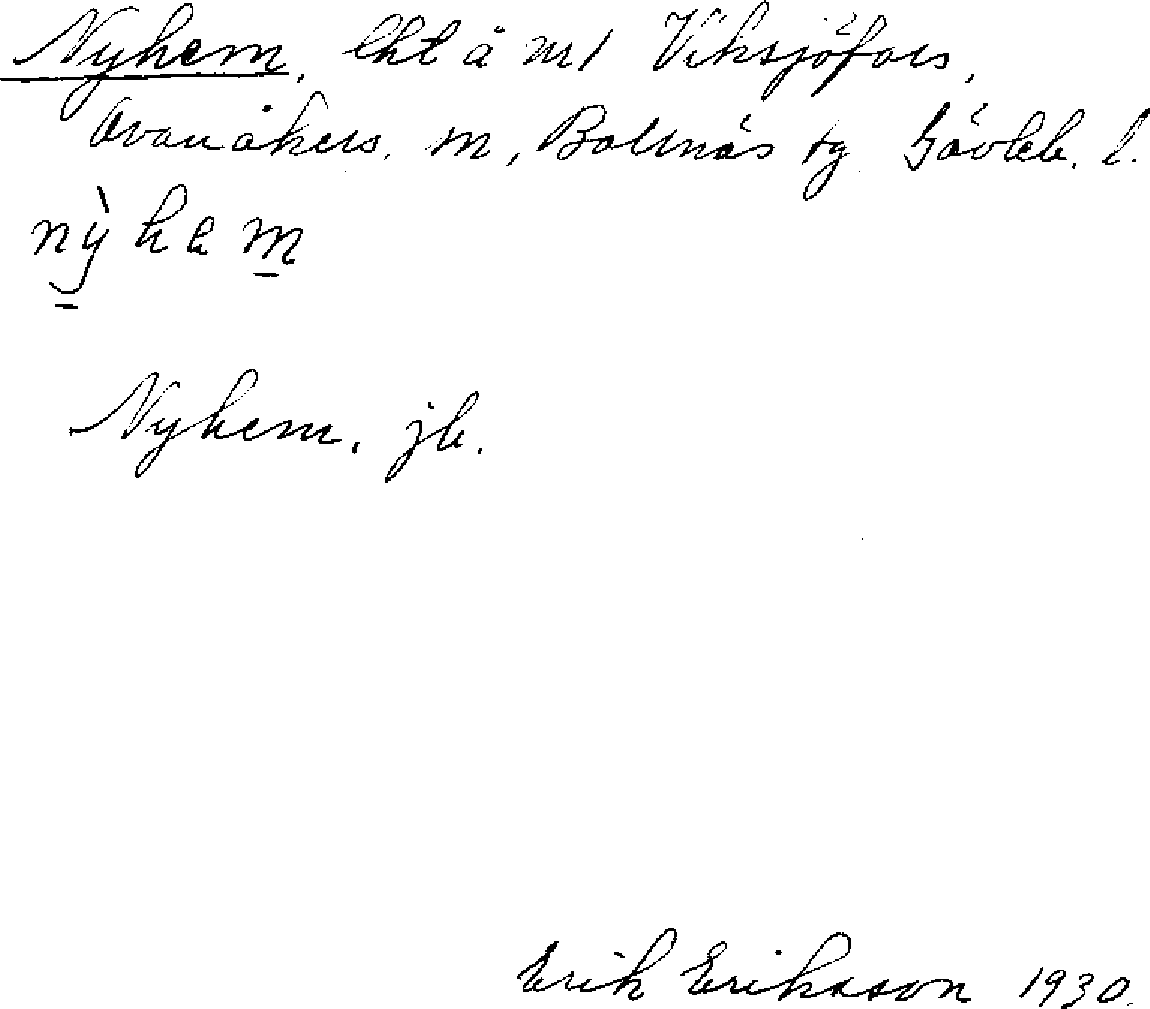 Nyhem, lht å nr 1 Viksjöfors,
Ovanåkers. m, Bollnäs tg Gävleb. l.
nỳhem
Nyhem. jb.
Erik Eriksson 1930.